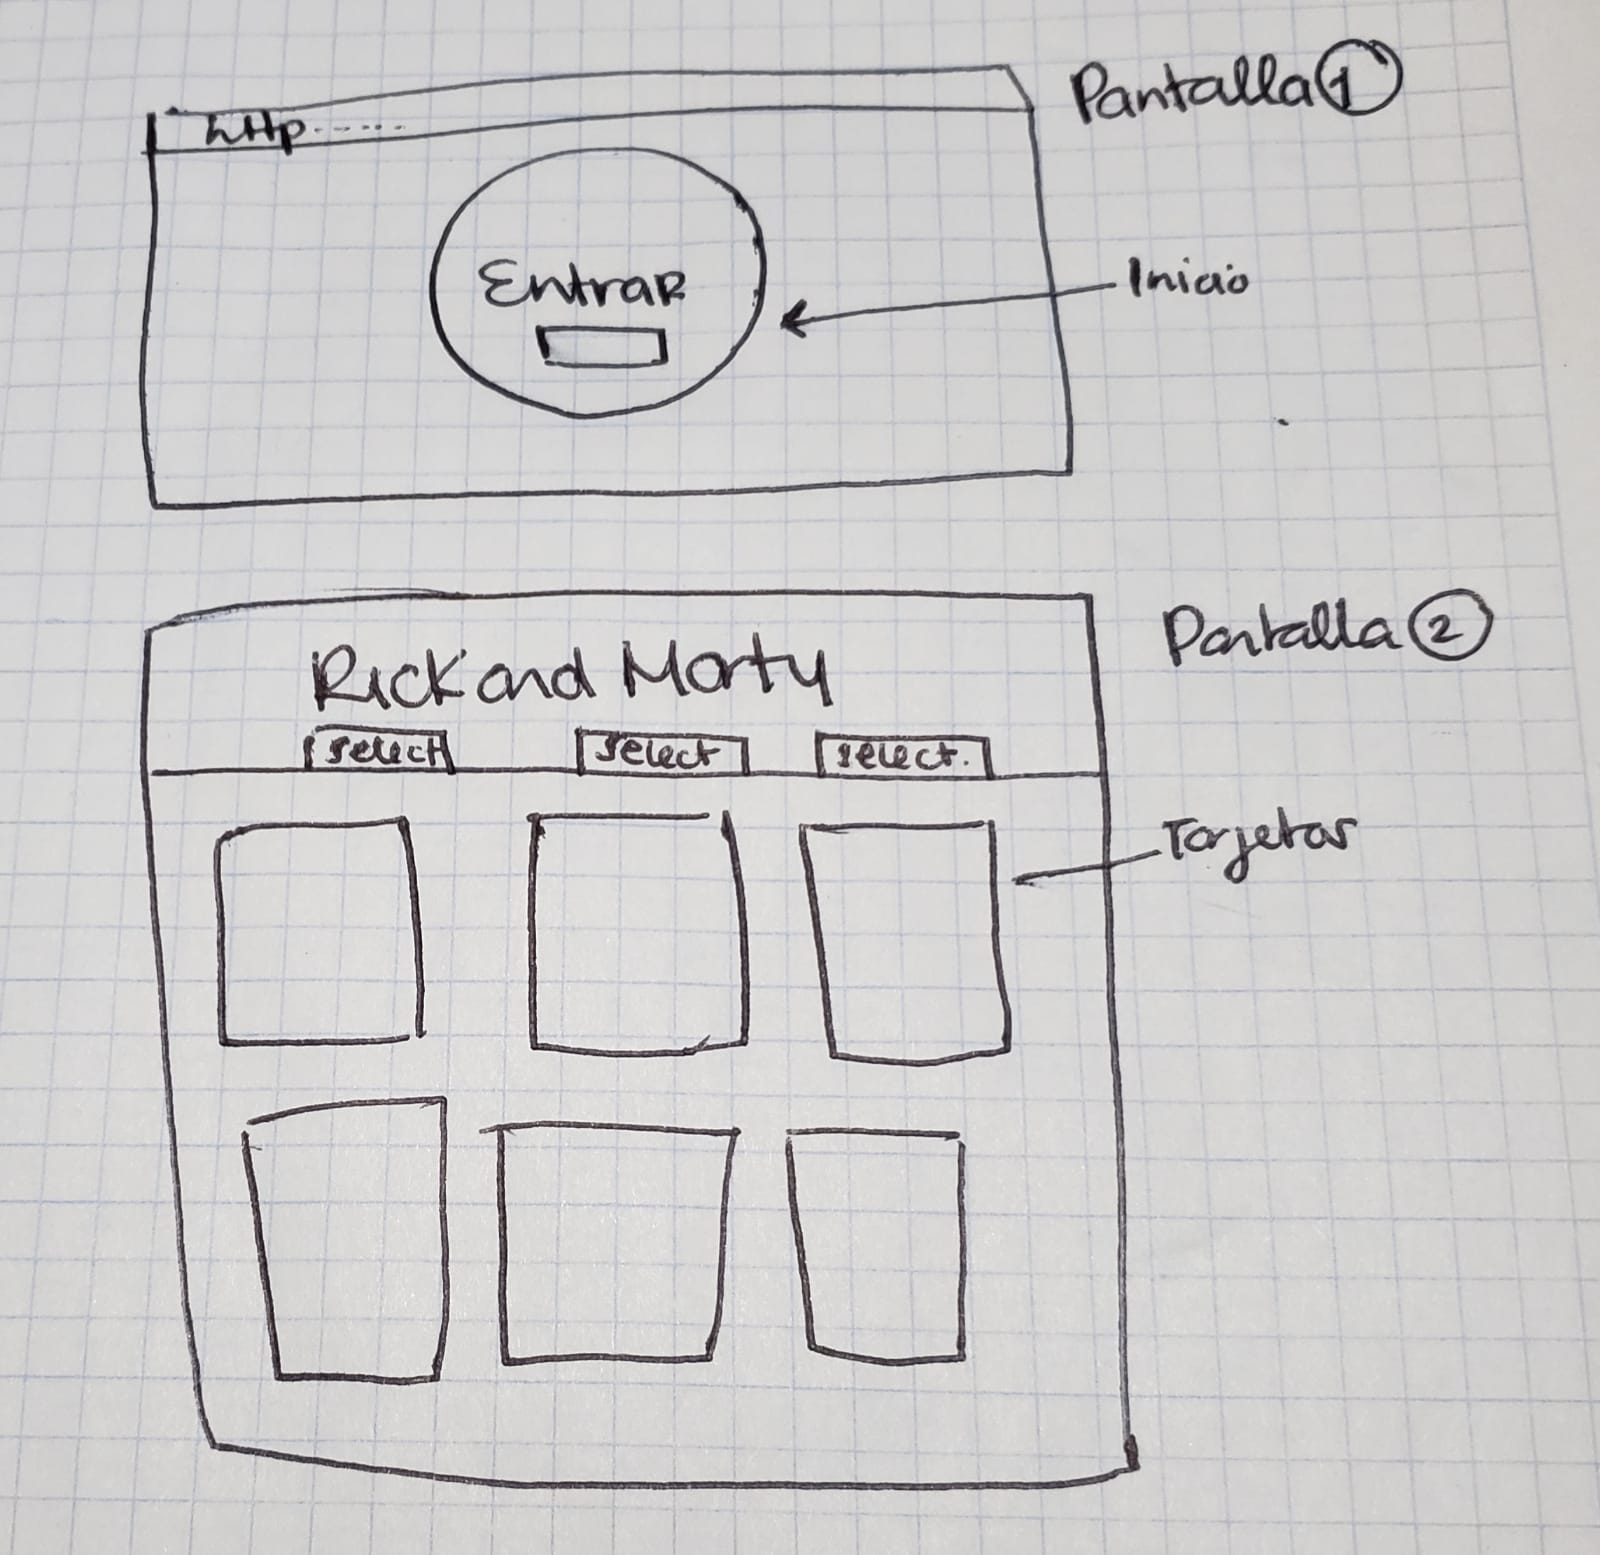 Pantalla 1
http......
Entrar
Inicio
Pantalla 2
Rick and Morty
select select select.
Tarjetas